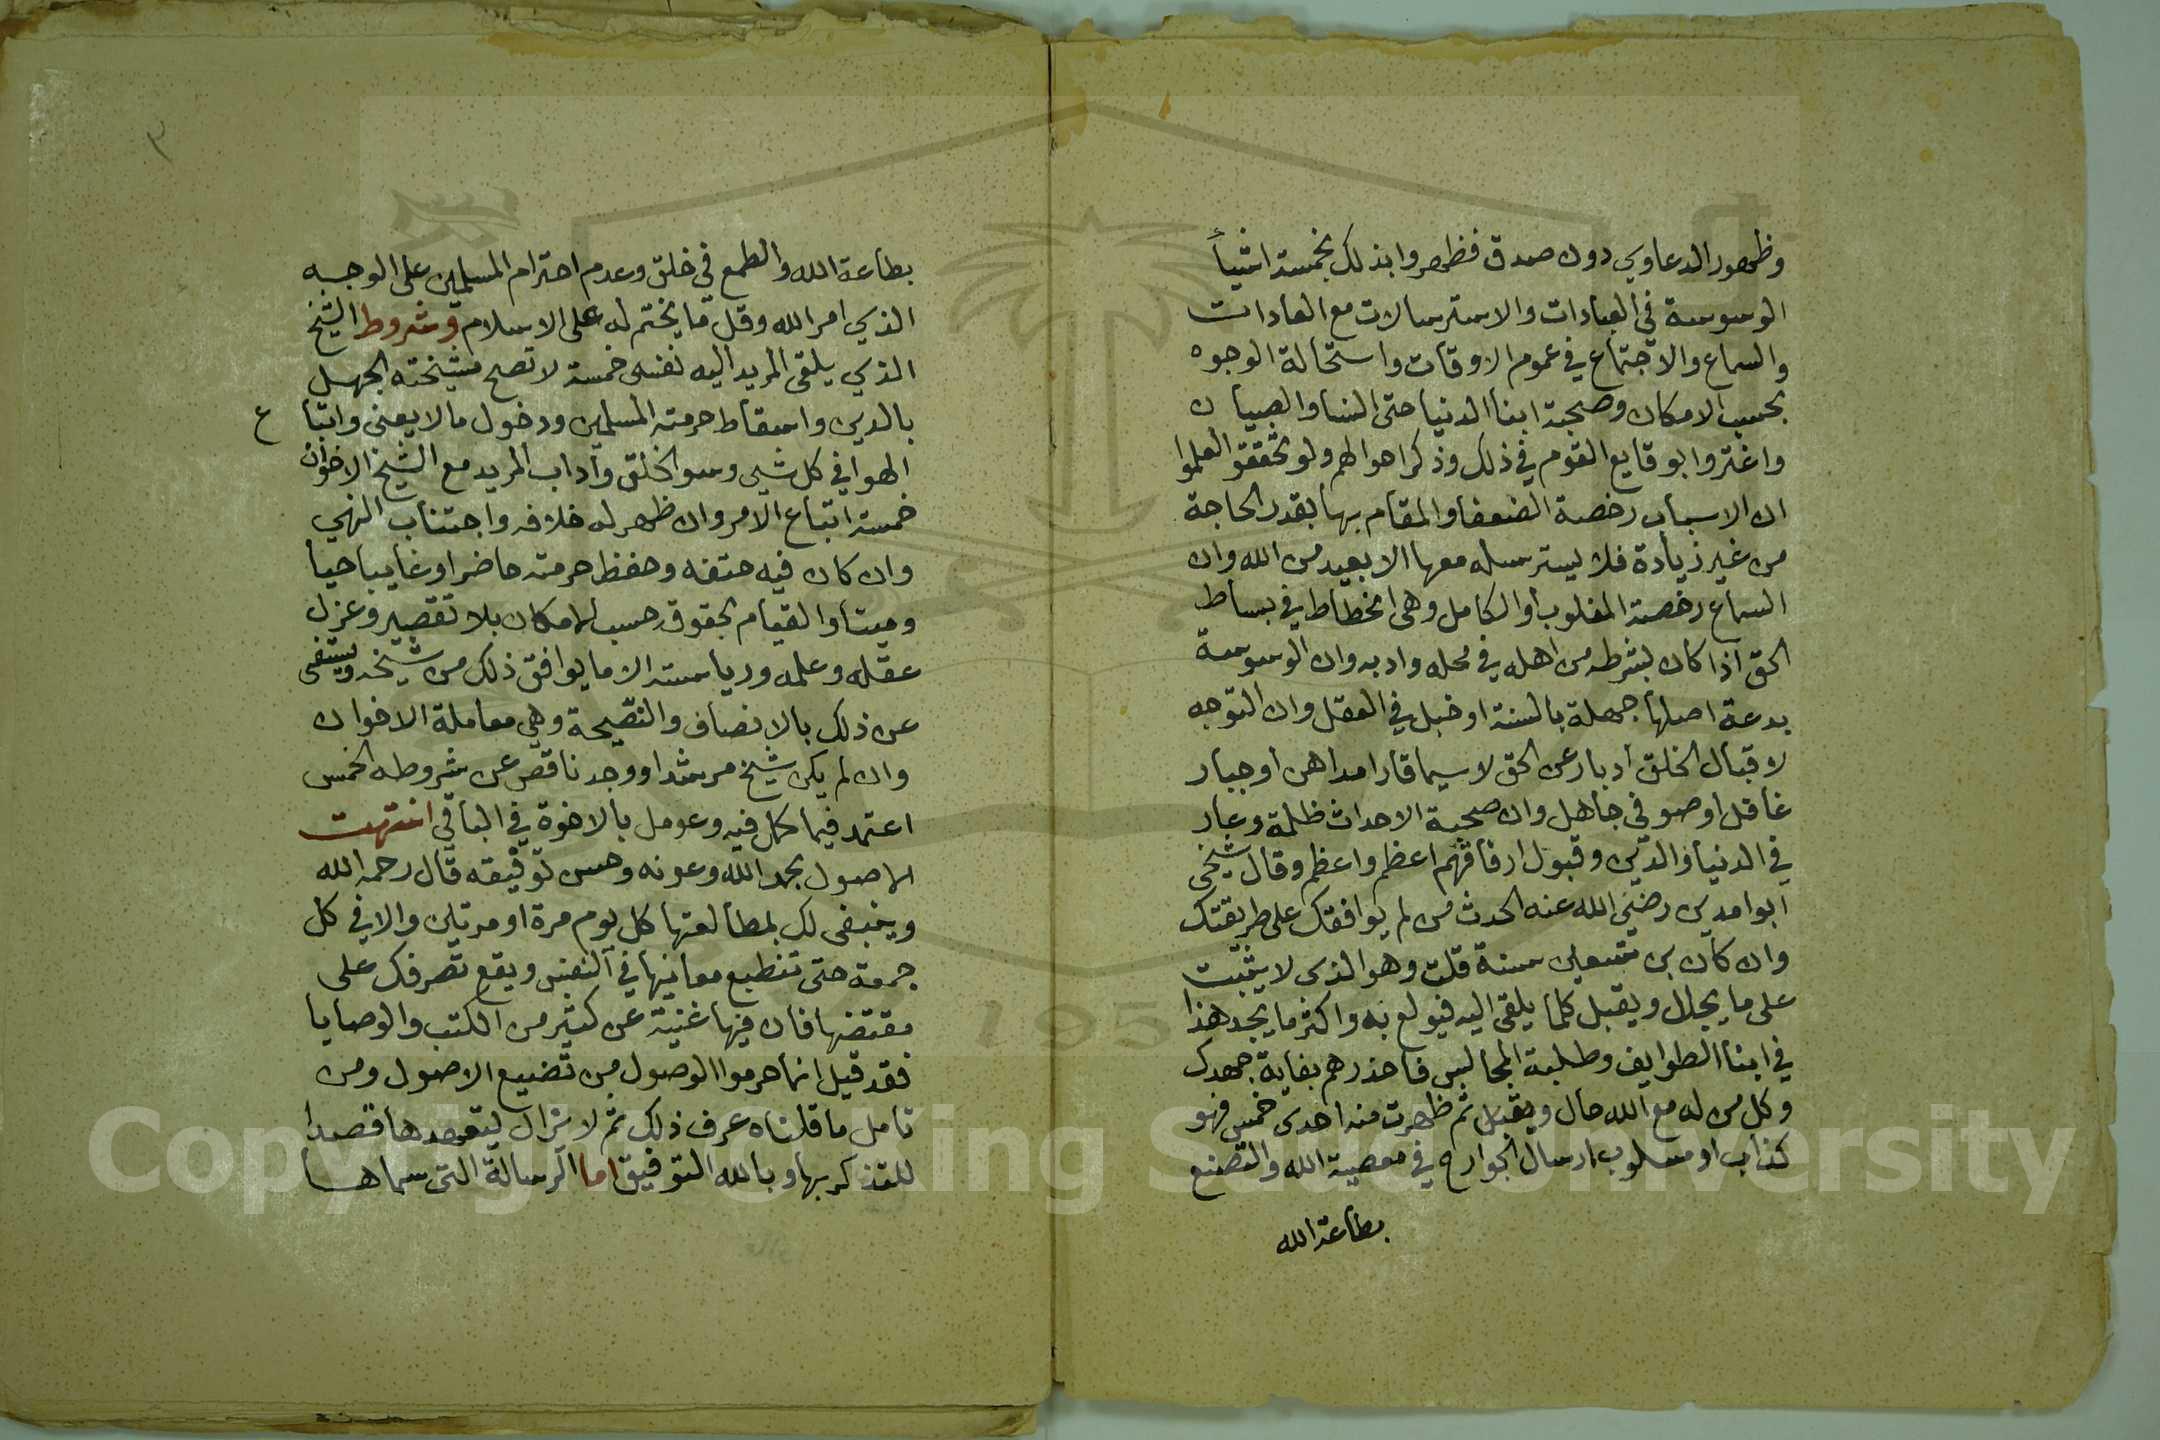 وظهور الدعاوي دون صدق فظهروا بذلك بخمسة اشيأ
الوسوسة في العبادات والاسترسالات مع العادات
والسماع والاجتماع في عموم الاوقات واستحالة الوجوه
بحسب الامكان وصحبة ابنا الدنيا حتى النسا والصبيان
واغتروا بوقايع القوم في ذلك وذكر احوالهم ولو تحققو العلموا
ان الاسباب رخصة الضعفا والمقام بها بقدر الحاجة
من غير زيادة فلا يسترسل معها الا بعيد من الله وان
السماع رخصة المغلوب او الكامل وهي انحطاط في بساط
الحق اذا كان بشرطه من اهله في محله وادبه وان الوسوسة
بدعة اصلها جهلة بالسنة او خبل في العقل وان التوجه
لاقبال الخلق ادبار عن الحق لا سيما قارا مداهن او جبار
غافل او صوفي جاهل وان صحبة الاحداث ظلمة وعار
في الدنيا والدين وقبول ارفاقهم اعظم واعظم وقال شيخي
ابوا مدين رضي الله عنه الحدث من لم يوافقك على طريقتك
وان كان بن تسعين سنة قلت وهو الذى لا يثبت
على ما يجلل ويقبل كلما يلقى اليه فيولع به واكثر ما يجد هذا
في ابنا الطوايف وطلبة المجالس فاحذرهم بغاية جهدك
وكل من له مع الله حال ويقبل ثم ظهرت منه احدى خمس فهو
كذاب او مسلوب ارسال الجوارح في معصية الله والتصنع
بطاعة الله
٣
بطاعة الله والطمع في خلق وعدم احترام المسلمين على الوجه
الذي امر الله وقل ما يختم له على الاسلام وشروط الشيخ
الذي يلقى المريد اليه نفسه خمسة لا تصح مشيخته الجهل
بالدين واسقاط حرمة المسلمين ودخول ما لا يعنى واتبا ع
الهوا في كل شيى وسو الخلق وآداب المريد مع الشيخ الاخوان
خمسة اتباع الامر وان ظهر له خلافه واجتناب النهي
وان كان فيه حتفه وحفظ حرمته حاضرا او غايبا حيا
وميتا والقيام بحقوق حسب الامكان بلا تقصير وعزل
عقله وعلمه ورياسته الا ما يوافق ذلك من شيخه ويستفى
عن ذلك بالانصاف والنصيحة وهي معاملة الاخوان
وان لم يكن شيخ مرشد او وجد ناقص عن شروطه الخمس
اعتمد فيما كمل فيه وعومل بالاخوة في الباقي انتهت
الاصول بحمد الله وعونه وحسن توفيقه قال رحمه الله
وينبغى لك بمطالعتها كل يوم مرة او مرتين والا في كل
جمعة حتى تنطبع معانيها في النفس ويقع تصرفك على
مقتضها فان فيها غنية عن كثير من الكتب والوصايا
فقد قيل انما حرموا الوصول من تضييع الاصول ومن
تامل ما قلناه عرف ذلك ثم لا يزال يتعهدها قصدا
للتذكر بها وبالله التوفيق اما الرسالة التى سماها